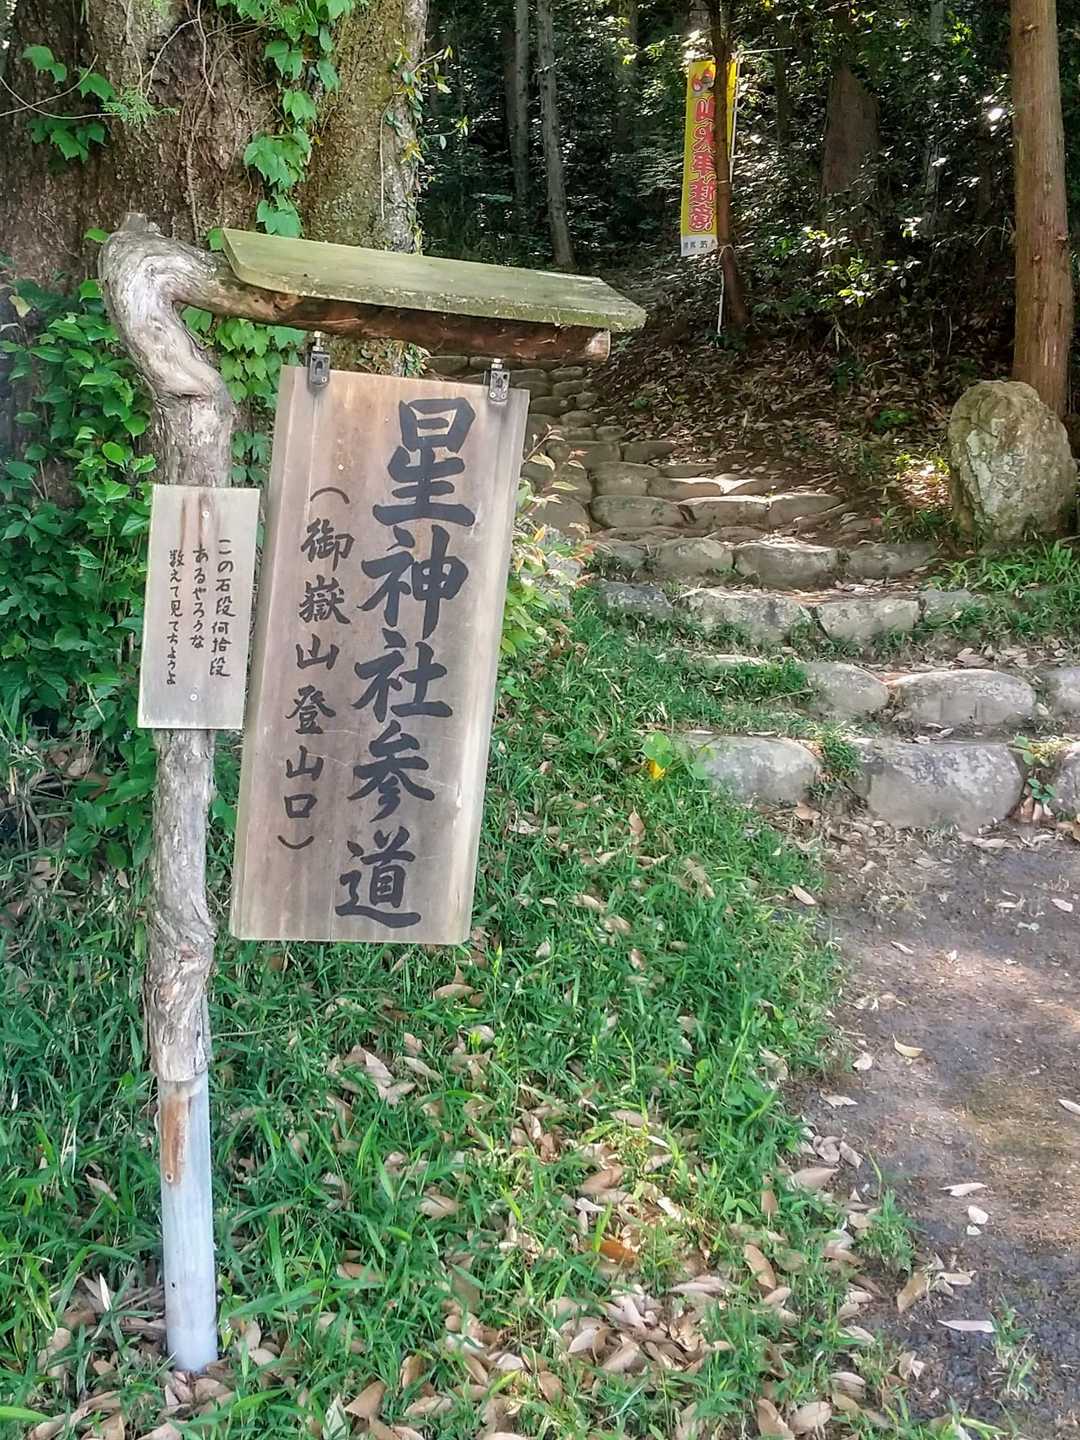 星神社参道
（御嶽山登山口）
この石段何拾段
あるやろうな
数えて見てちょうよ